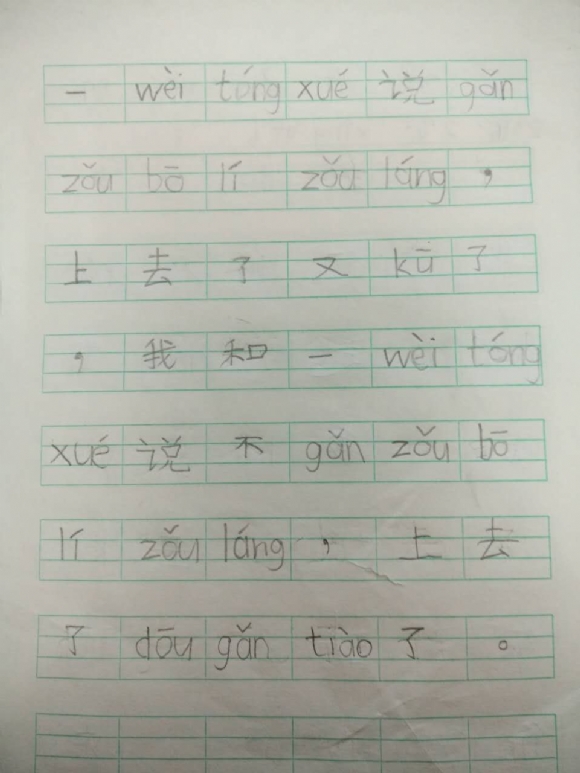 一 wèi tóng xué 说 gǎn
zǒu bō lí zǒu láng ，
上 去 了 又 kū 了
， 我 和 一 wèi tóng
xué 说 不 gǎn zǒu bō
lí zǒu láng ， 上 去
了 dōu gǎn tiào 了 。